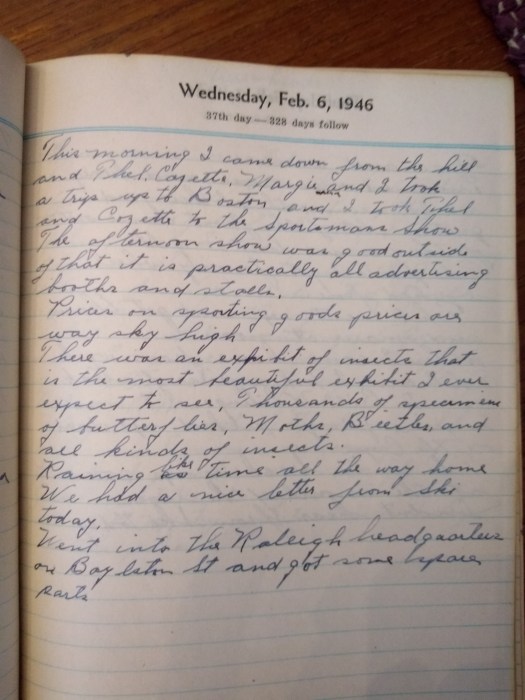 Wednesday, Feb. 6, 1946
37th day — 328 days follow
This morning I came down from the hill
and Thel. Cozette, Margie and I took
a trip up to Boston and I took Thel
and Cozette to the Sportsmans Show
The afternoon show was good outside
of that it is practically all advertising
booths and stalls.
Prices on sporting goods prices are
way sky high
There was an exhibit of insects that
is the most beautiful exhibit I ever
expect to see. Thousands of specimens
of butterflies, Moths, Beetles, and
all kinds of insects.
Raining like time all the way home
We had a nice letter from Ski
today.
Went into the Raleigh headquarters
on Boylston St and got some spare
parts